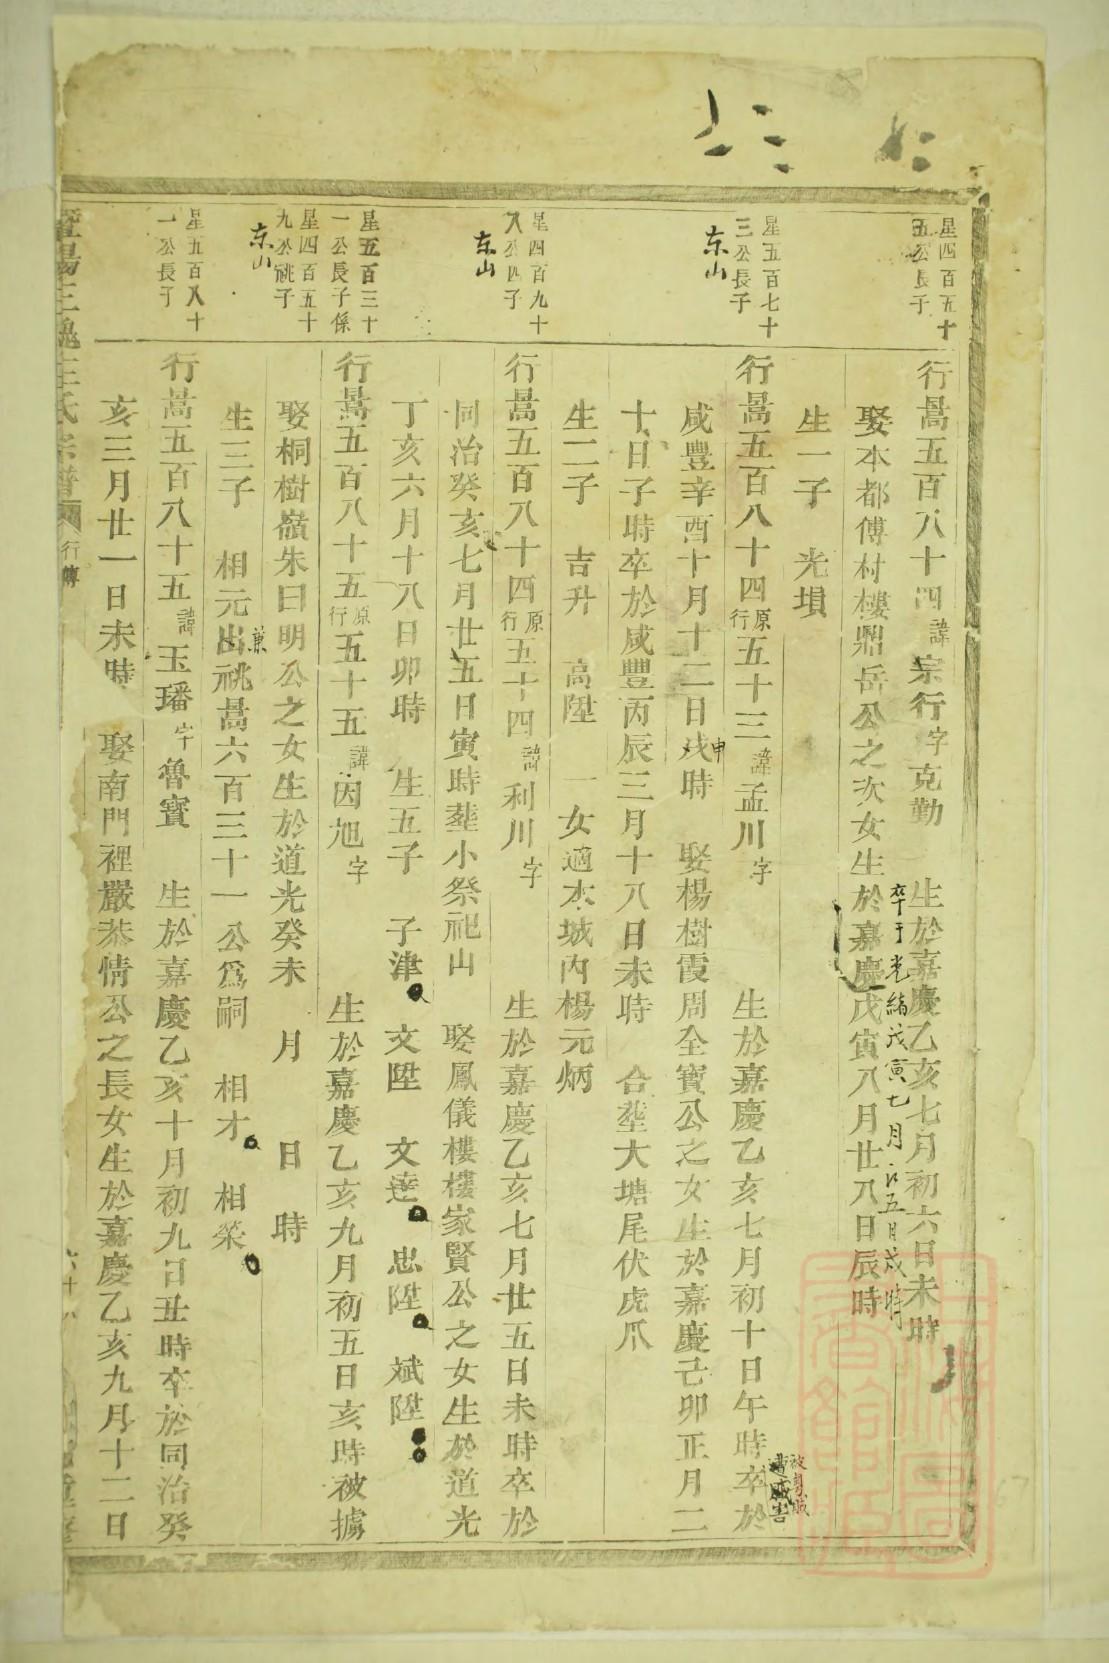 星四百五十
五公長子
行暠五百八十四諱宗行字克勤　生於嘉慶乙亥七月初六日未時
卒于光緒戊寅七月 五日戌時
娶本都傅村樓鼎岳公之次女生於嘉慶戊寅八月廿八日辰時
生一子　光墳
星五百七十
三公長子
东山
行暠五百八十四原行五十三諱孟川字　生於嘉慶乙亥七月初十日午時卒於
咸豐辛酉十月十二日戌時　娶楊樹霞周全寶公之女生於嘉慶己卯正月二
申
十日子時卒於咸豐丙辰三月十八日未時　合塟大塘尾伏虎爪
生二子　吉升　高陞　一女適本城內楊元炳
星四百九十
八公四子
东山
行暠五百八十四原行五十四諱利川字　生於嘉慶乙亥七月廿五日未時卒於
同治癸亥七月廿五日寅時塟小祭祀山　娶鳳儀樓樓家賢公之女生於道光
丁亥六月十八日卯時　生五子　子津　文陞　文達　忠陞　斌陞
星五百三十
一公長子係
星四百五十
九公祧子
东山
行暠五百八十五原行五十五諱因旭字　生於嘉慶乙亥九月初五日亥時被擄
娶桐樹嶺朱曰明公之女生於道光癸未　月　日　時
生三子　相元出祧暠六百三十一公爲嗣　相才　相榮
兼
星五百八十
一公長子
行暠五百八十五諱玉璠字魯寶　生於嘉慶乙亥十月初九日丑時卒於同治癸
亥三月廿一日未時　娶南門裡嚴恭情公之長女生於嘉慶乙亥九月十二日
王氏宗譜
行傳
六十八